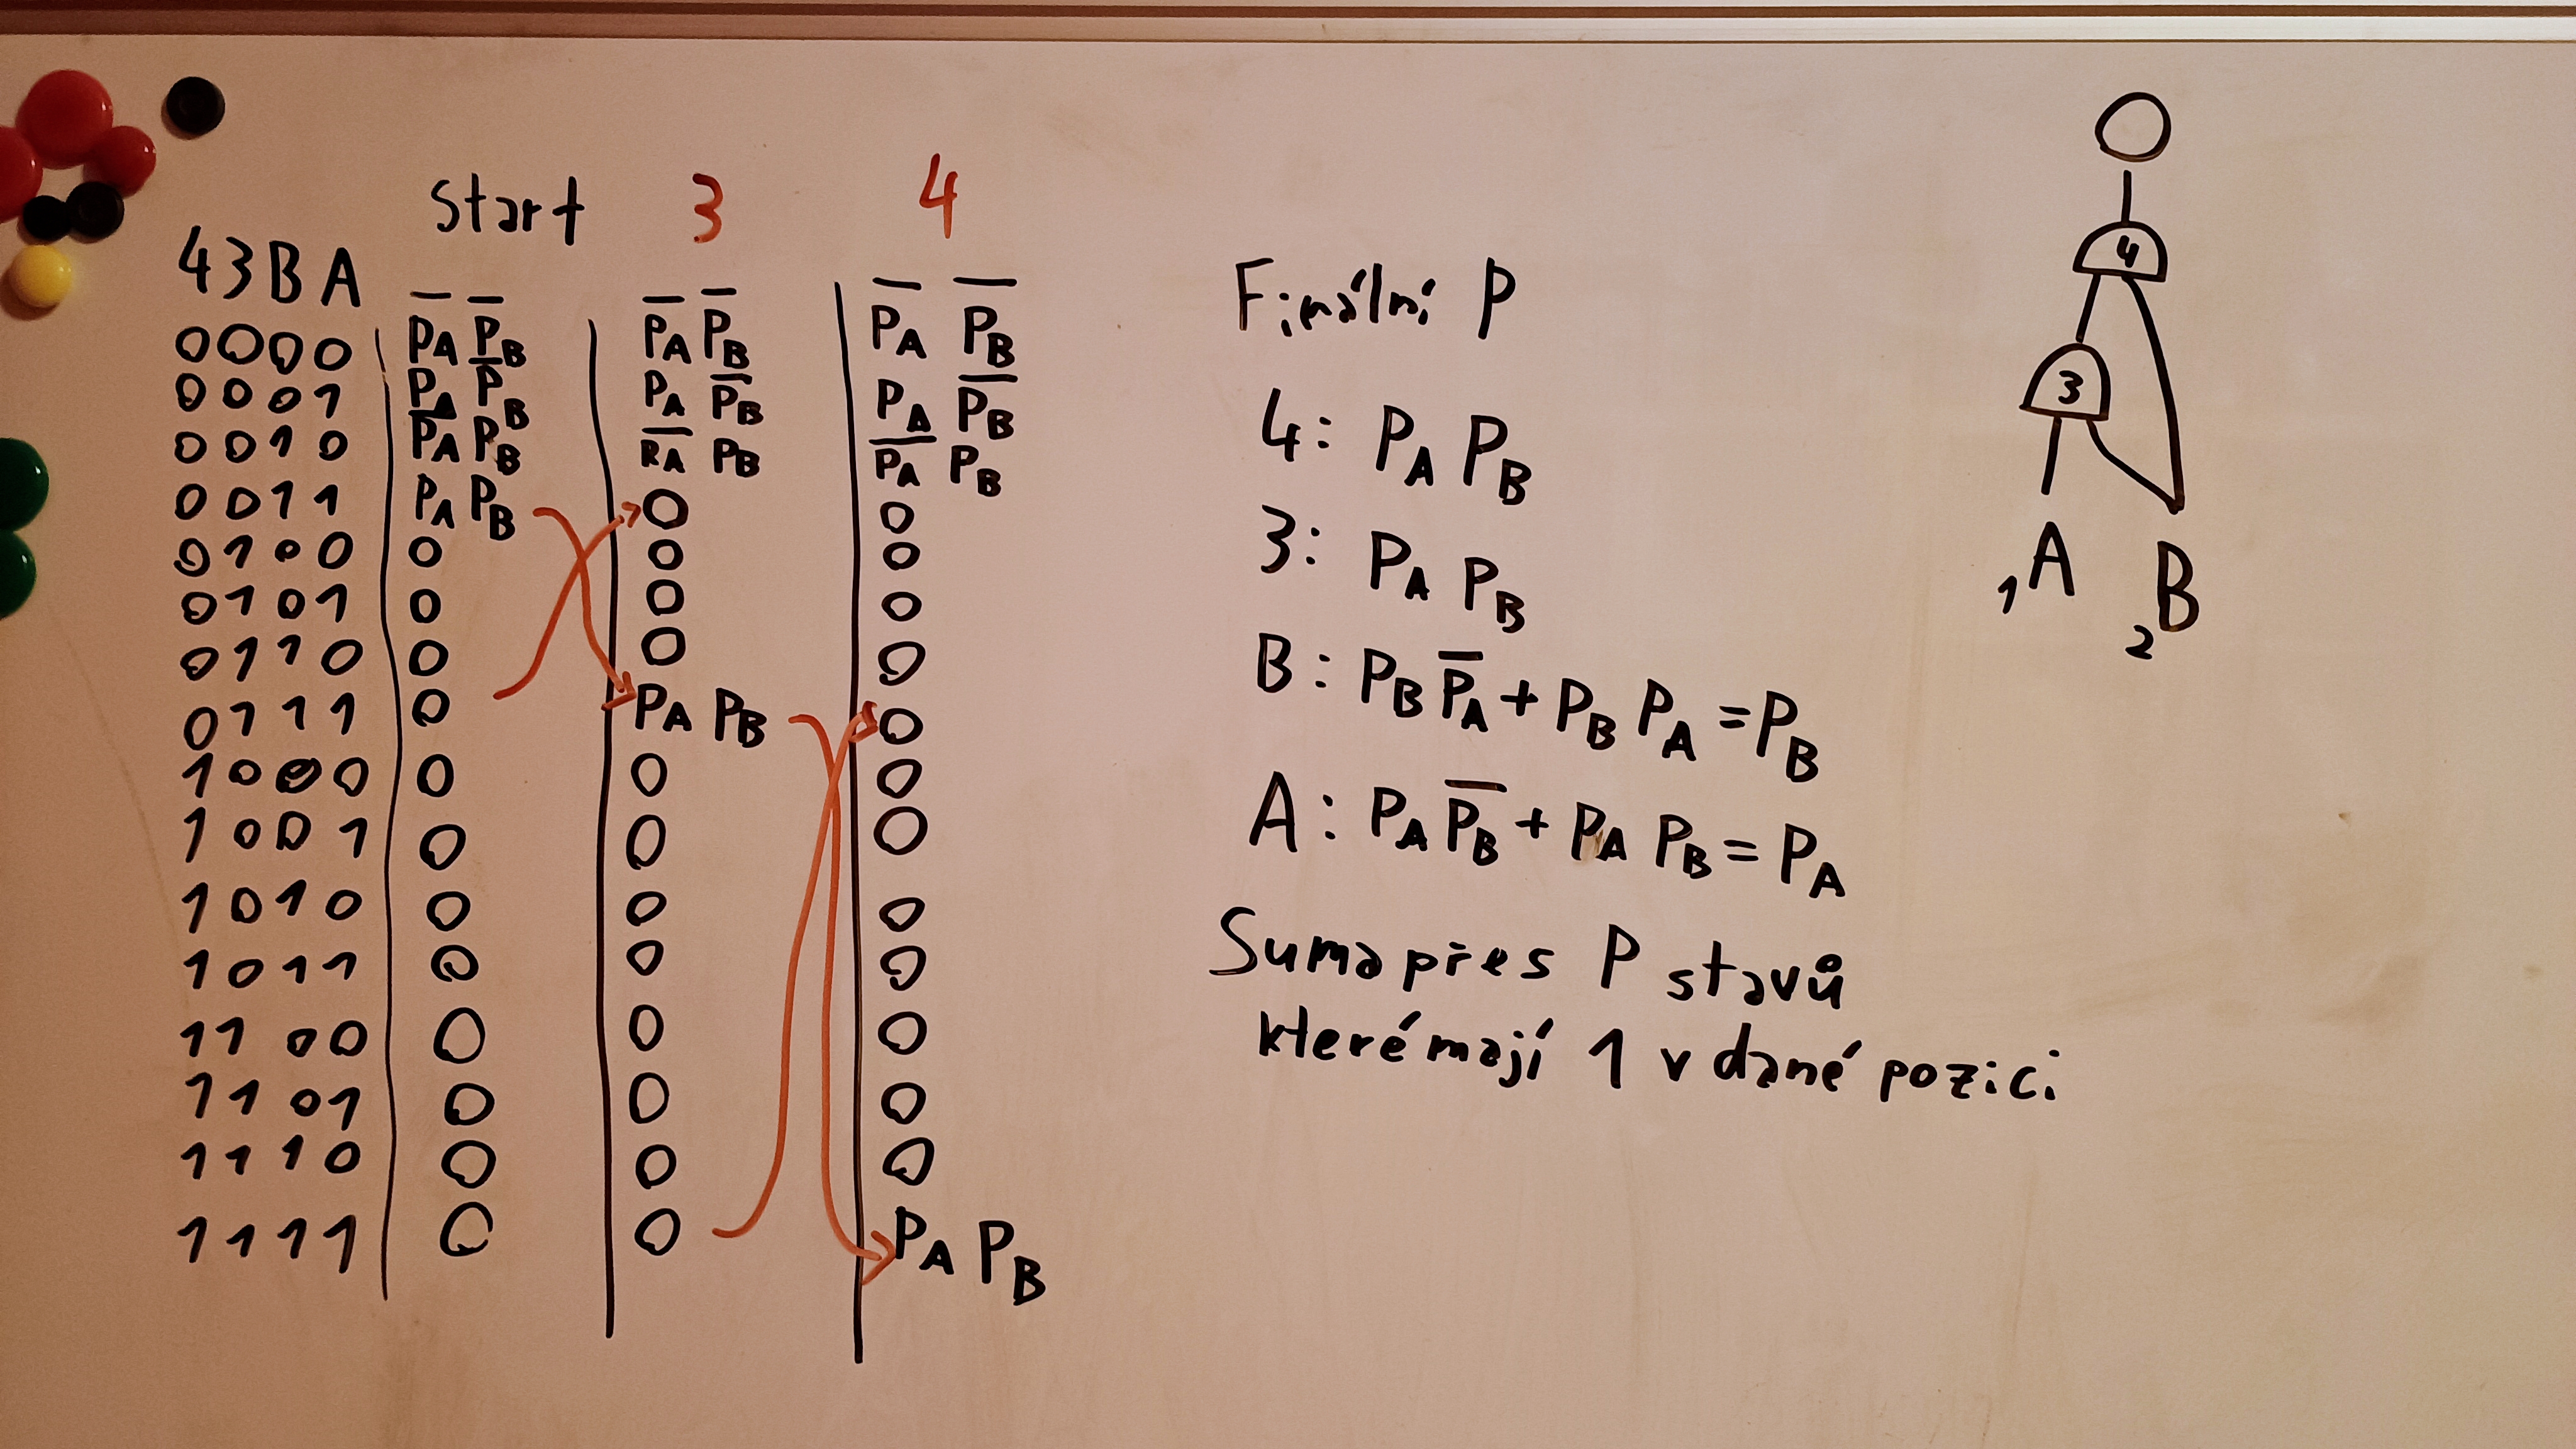 Start 3 4
43BA
0000 | P̅A P̅B | P̅A P̅B | P̅A P̅B
0001 | PA P̅B | PA P̅B | PA P̅B
0010 | P̅A PB | P̅A PB | P̅A PB
0011 | PA PB | 0 | 0
0100 | 0 | 0 | 0
0101 | 0 | 0 | 0
0110 | 0 | 0 | 0
0111 | 0 | PA PB | 0
1000 | 0 | 0 | 0
1001 | 0 | 0 | 0
1010 | 0 | 0 | 0
1011 | 0 | 0 | 0
1100 | 0 | 0 | 0
1101 | 0 | 0 | 0
1110 | 0 | 0 | 0
1111 | 0 | 0 | PA PB
Finální P
4: PA PB
3: PA PB
B: PB P̅A + PB PA = PB
A: PA P̅B + PA PB = PA
Suma přes P stavů
které mají 1 v dané pozici
4
3
1 A
2 B